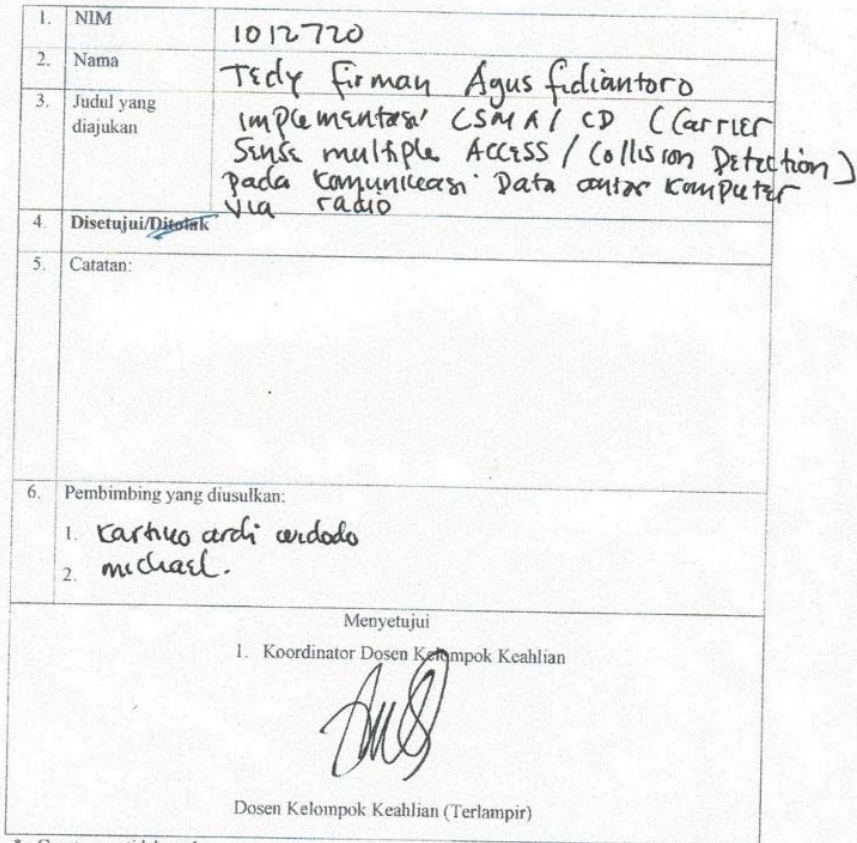 1. NIM 1012720
2. Nama Tedy Firman Agus Fidiantoro
3. Judul yang diajukan Implementasi CSMA/CD (Carrier
Sense multiple Access / Collision Detection)
pada Komunikasi Data antar Komputer
via radio
4. Disetujui/Ditolak
5. Catatan:
6. Pembimbing yang diusulkan:
1. Kartiko ardi
2. michael.
Menyetujui
1. Koordinator Dosen Kelompok Keahlian
Dosen Kelompok Keahlian (Terlampir)